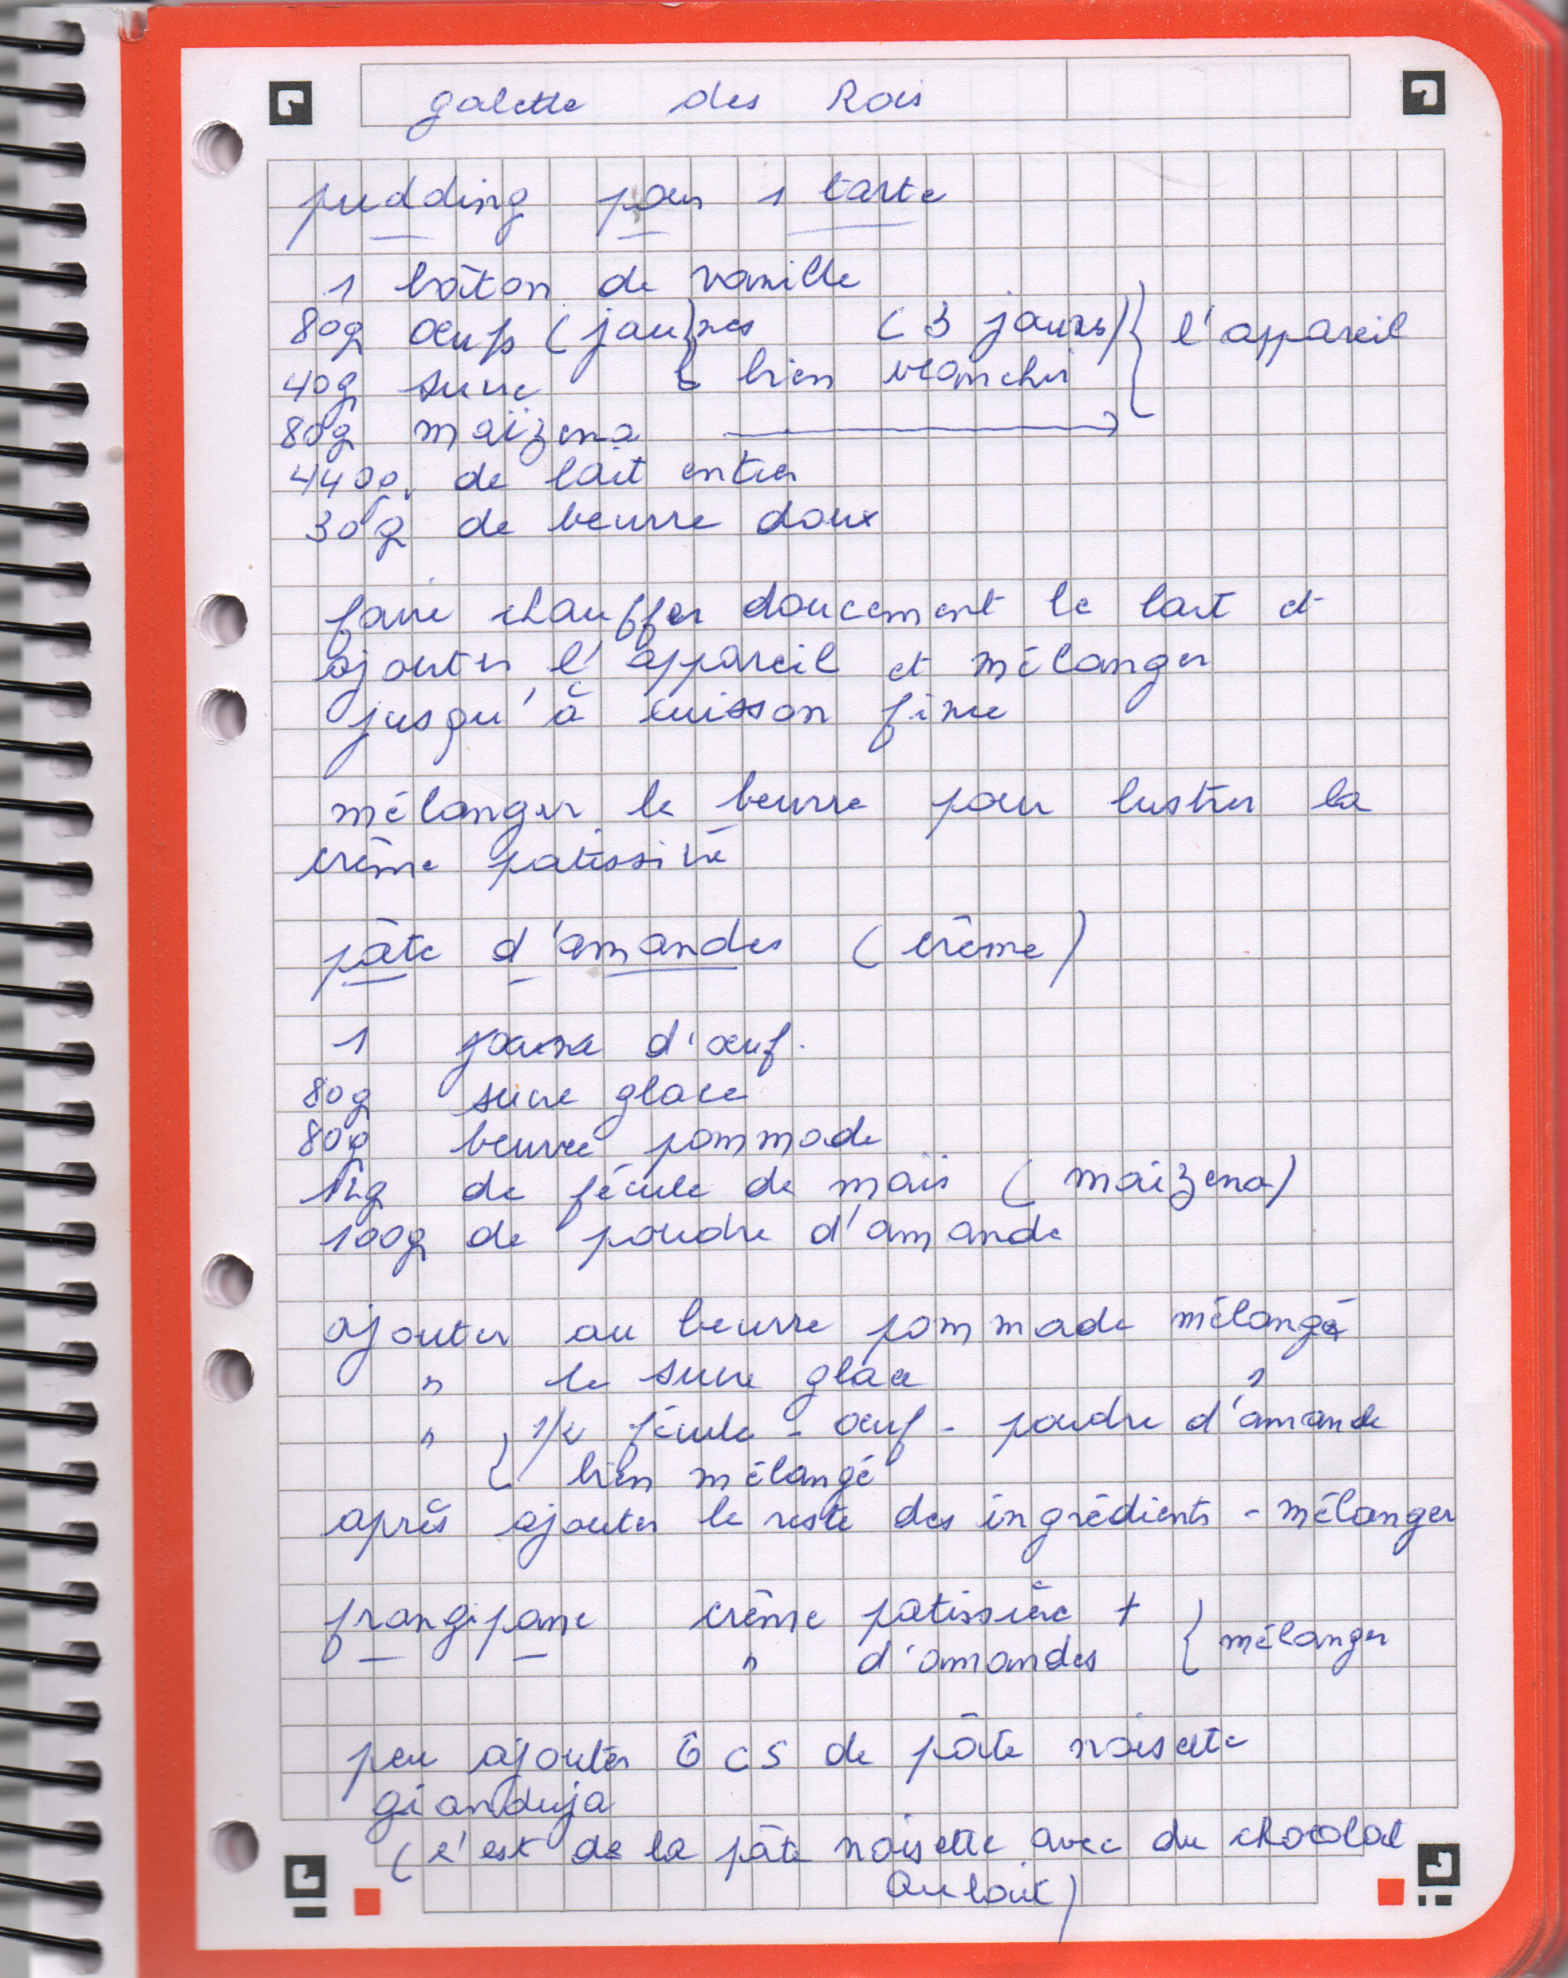 galette des Rois
pudding pour 1 tarte
1 bâton de vanille
80g œufs (jaunes (3 jaunes) l'appareil
40g sucre ↳ bien blanchir
80g maïzena →
440g. de lait entier
30g de beurre doux
faire chauffer doucement le lait et
ajouter l'appareil et mélanger
jusqu'à cuisson finie
mélanger le beurre pour lustrer la
crème patissière
pâte d'amandes (crème)
1 jaune d'œuf.
80g sucre glace
80g beurre pommade
12g de fécule de maïs (maïzena)
100g de poudre d'amande
ajouter au beurre pommade mélangé
" le sucre glace "
" { 1/2 fécule - œuf - poudre d'amande
bien mélangé
après ajouter le reste des ingrédients - mélanger
frangipane crème patissière +
" d'amandes } mélanger
peu ajouter 6 CS de pâte noisette
gianduja
(c'est de la pâte noisette avec du chocolat
au lait)